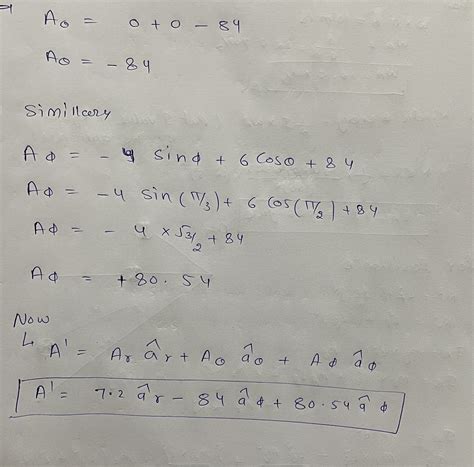 Aθ = 0 + 0 - 84
Aθ = - 84
Simillarly
AΦ = - 4 sinΦ + 6 Cosθ + 84
AΦ = - 4 sin(π/3) + 6 cos(π/2) + 84
AΦ = - 4 × √3/2 + 84
AΦ = + 80.54
Now
↳ A' = Ar âr + Aθ âθ + AΦ âΦ
A' = 7.2 âr - 84 âΦ + 80.54 âΦ